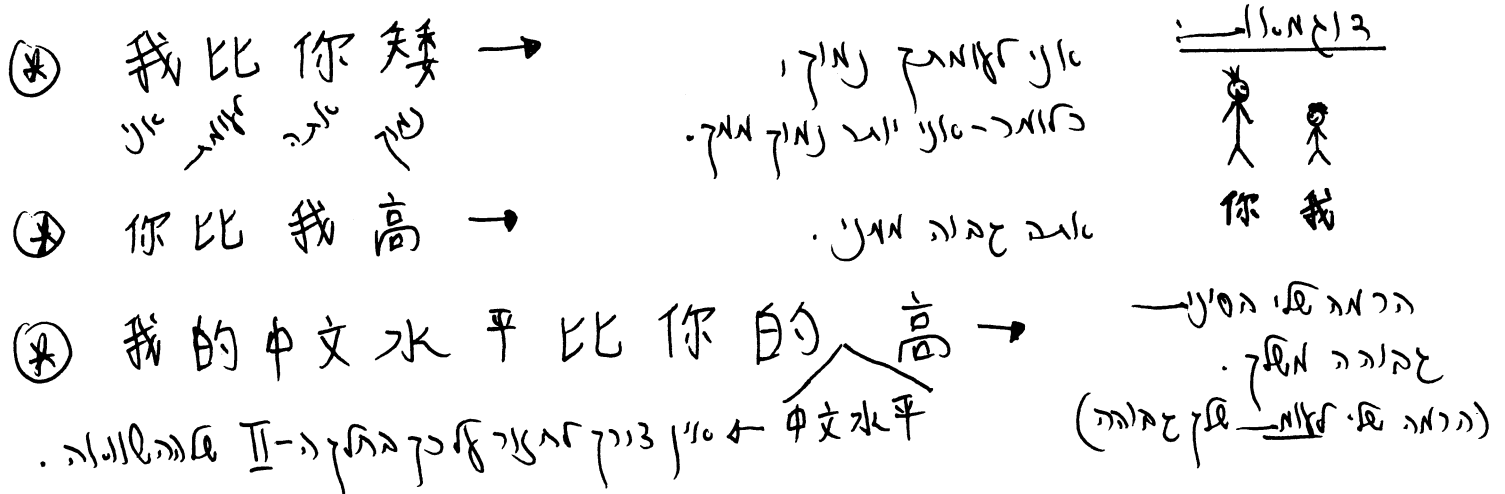 דוגמאות:
我比你矮 → אני לעומתך נמוך,
אני לעומת אתה נמוך
כלומר - אני יותר נמוך ממך.
你 我
你比我高 → אתה גבוה ממני.
我的中文水平比你的高 → הרמה שלי בסיני
גבוהה משלך.
(הרמה שלי לעומת שלך גבוהה)
中文水平 ← אין צורך לחזור על כך בחלק ה-II של ההשוואה.